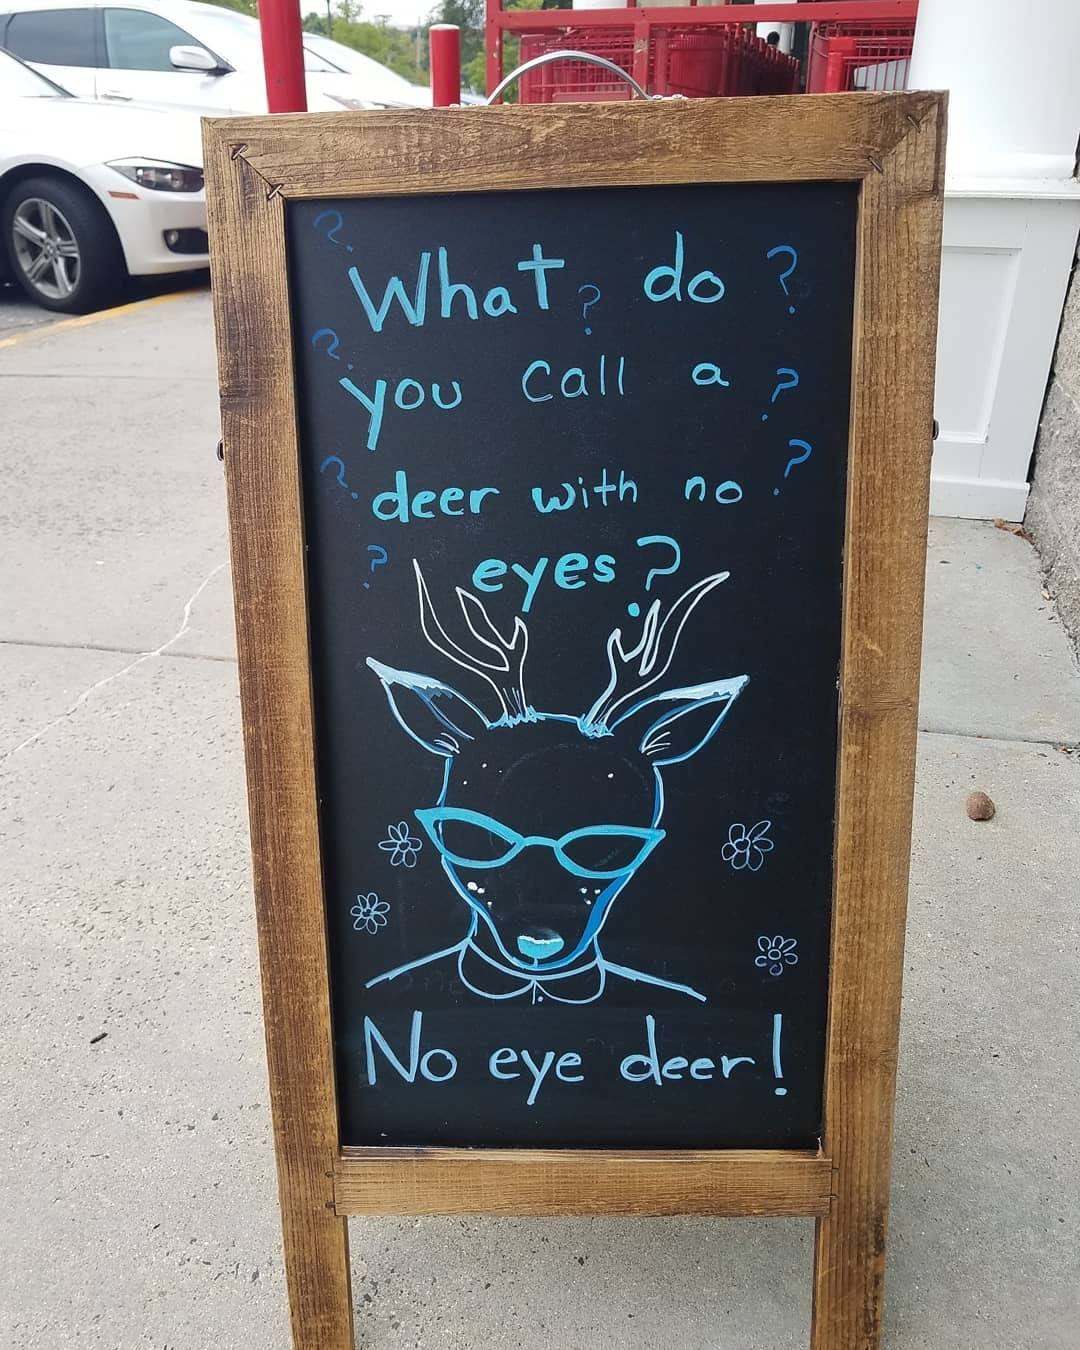 What do
you call a
deer with no
eyes?
No eye deer!